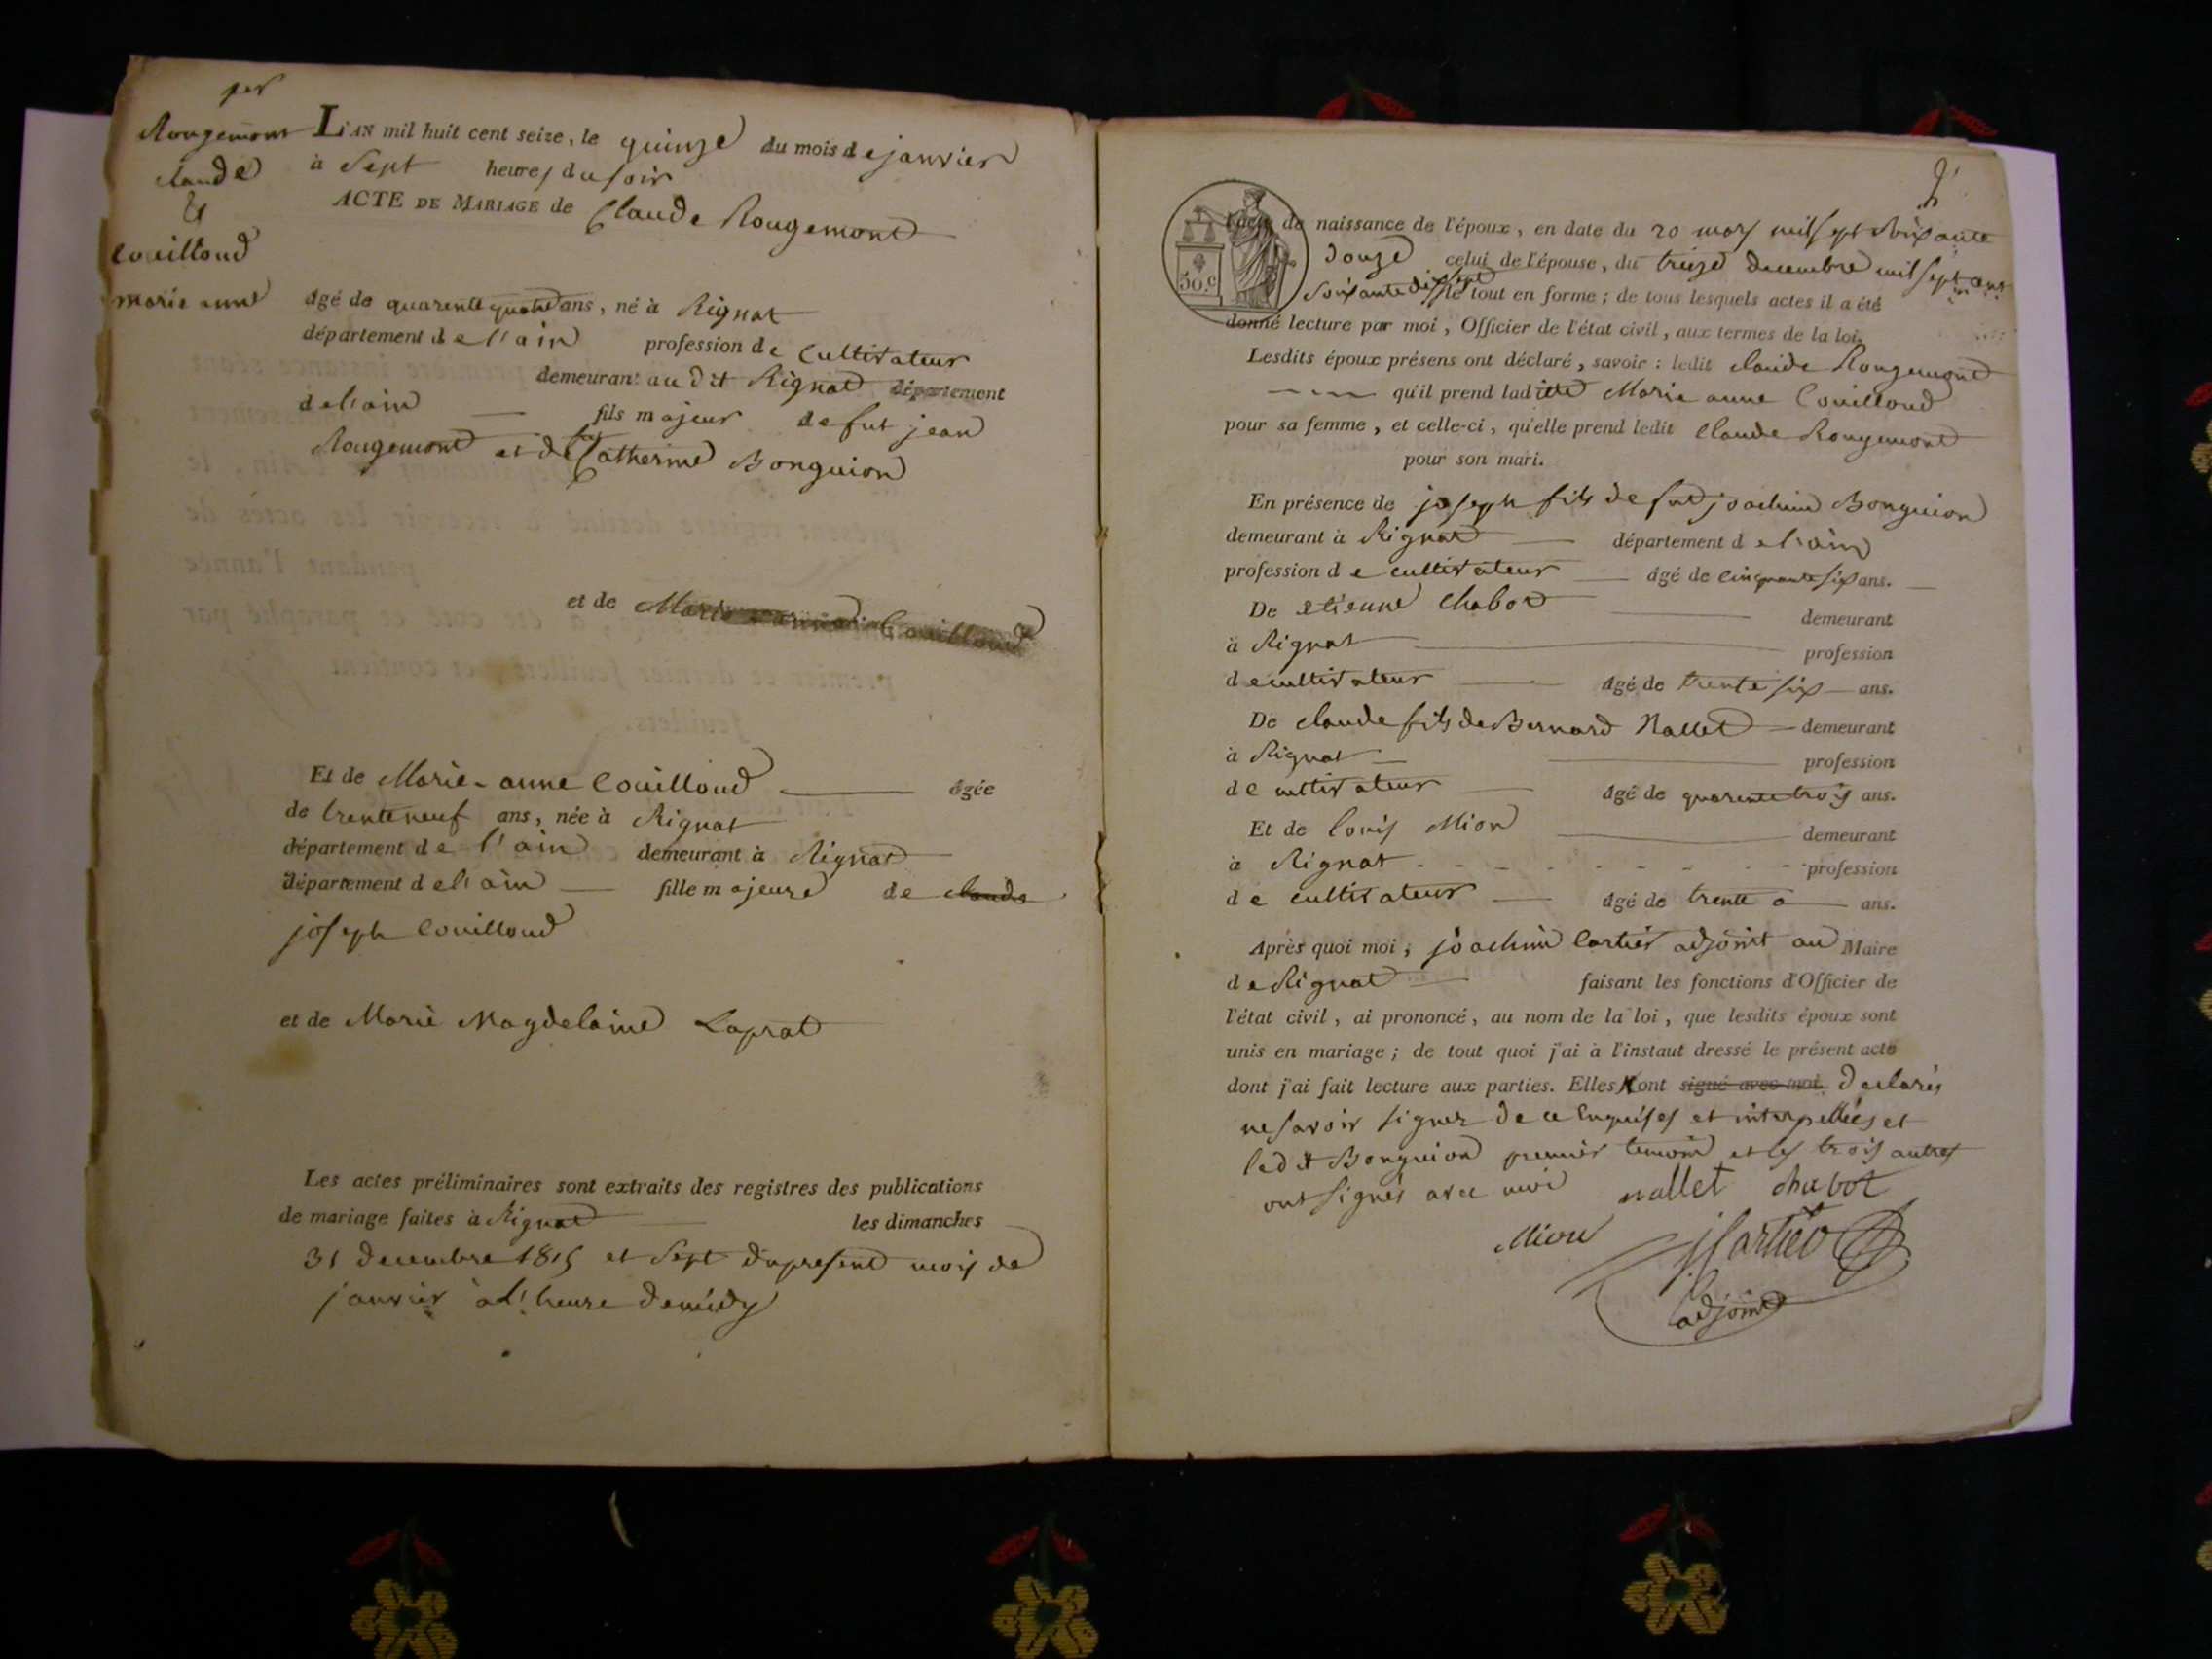 per
Rougemont
claude
&
Couilloud
marie anne
L'AN mil huit cent seize, le quinze du mois de janvier
à Sept heures du soir
ACTE DE MARIAGE de Claude Rougemont
âgé de quarente quatre ans, né à Rignat
département de l'ain profession de Cultivateur
demeurant au dit Rignat département
de l'ain fils majeur de fut jean
Rougemont et de fut Catherine Bonguion
et de Marie anne Couilloud
Et de Marie-anne Couilloud âgée
de trente neuf ans, née à Rignat
département de l'ain demeurant à Rignat
département de l'ain fille majeure de claude
joseph Couilloud
et de Marie Magdelaine Laprat
Les actes préliminaires sont extraits des registres des publications
de mariage faites à Rignat les dimanches
31 decembre 1815 et Sept du present mois de
janvier à l'heure de midy
2
50.c
l'acte de naissance de l'époux, en date du 20 mars mil sept Soixante
douze celui de l'épouse, du treize decembre mil sept cent
Soixante dix sept le tout en forme; de tous lesquels actes il a été
donné lecture par moi, Officier de l'état civil, aux termes de la loi.
Lesdits époux présens ont déclaré, savoir: ledit claude Rougemont
qu'il prend ladite Marie anne Couilloud
pour sa femme, et celle-ci, qu'elle prend ledit Claude Rougemont
pour son mari.
En présence de joseph fils de fut joachim Bonguion
demeurant à Rignat département de l'ain
profession de cultivateur âgé de cinquante six ans.
De etienne Chabot demeurant
à Rignat profession
de cultivateur âgé de trente six ans.
De claude fils de Bernard Nallet demeurant
à Rignat profession
de cultivateur âgé de quarente trois ans.
Et de louis Mion demeurant
à Rignat profession
de cultivateur âgé de trente ans.
Après quoi moi, joachim Cartier adjoint au Maire
de Rignat faisant les fonctions d'Officier de
l'état civil, ai prononcé, au nom de la loi, que lesdits époux sont
unis en mariage; de tout quoi j'ai à l'instaut dressé le présent acte
dont j'ai fait lecture aux parties. Elles ont signé avec moi declarés
ne savoir signer de ce Enquises et interpellées et
led it Bonguion premier temoin et les trois autres
ont signés avec moi nallet chabot
Mion JCartier
adjoint